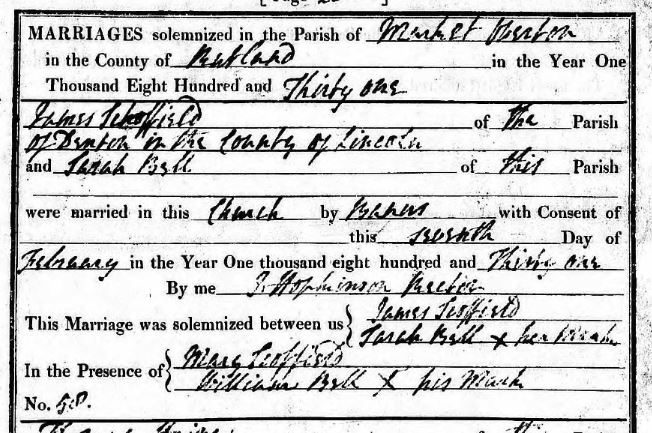 MARRIAGES solemnized in the Parish of Market Overton
in the County of Rutland in the Year One
Thousand Eight Hundred and Thirty one
James Schoffield of the Parish
of Denton in the County of Lincoln
and Sarah Bell of this Parish
were married in this Church by Banns with Consent of
this seventh Day of
February in the Year One thousand eight hundred and Thirty one
By me Hopkinson Rector
This Marriage was solemnized between us { James Scoffield
Sarah Bell x her Mark
In the Presence of { Mary Scoffield
William Bell X his Mark
No. 58.